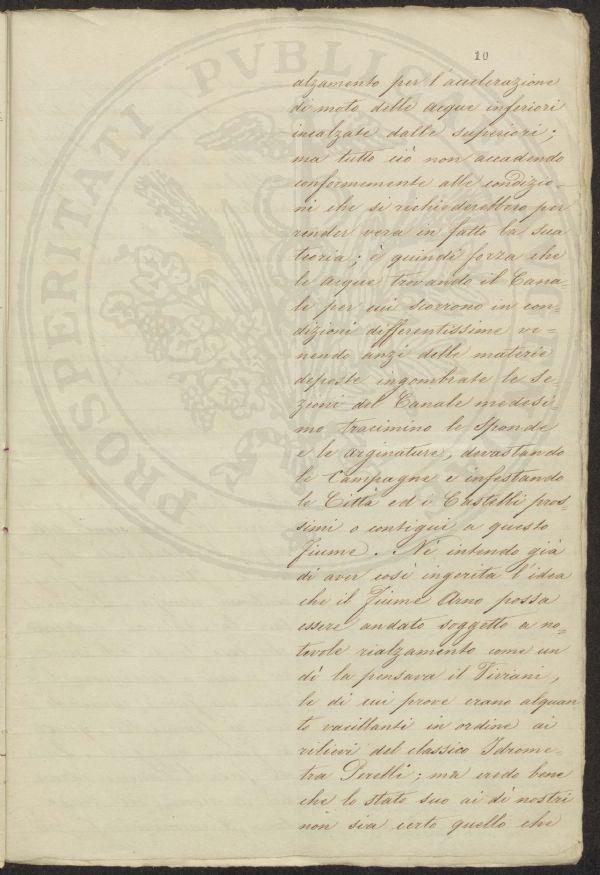 10
alzamento per l'accelerazione
di moto delle acque inferiori
incalzate dalle superiori;
ma tutto ciò non accadendo
conformemente alle condizio=
ni che si richiederebbero per
render vera in fatto la sua
teoria; è quindi forza che
le acque trovando il Cana=
le per cui scorrono in con=
dizioni differentissime ve=
nendo anzi delle materie
deposte ingombrate le Se
zioni del Canale medesi
mo tracimino le sponde
e le arginature, devastando
le Campagne e infestando
le Città ed i Castelli pros=
simi o contigui a questo
Fiume. Nè intendo già
di aver così ingerita l'idea
che il Fiume Arno possa
essere andato soggetto a no=
tevole rialzamento come un
dì la pensava il Viviani,
le di cui prove erano alquan
to vacillanti in ordine ai
rilievi del classico Idrome=
tra Perelli; ma credo bene
che lo stato suo ai dì nostri
non sia certo quello che
PROSPERITATI PVBLICAE